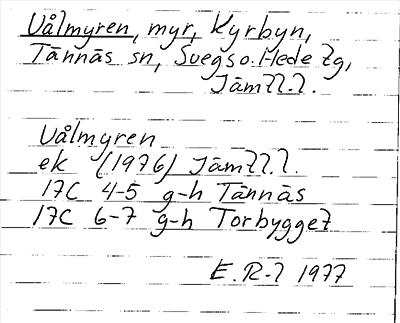 Vålmyren, myr, Kyrbyn,
Tännäs sn, Svegs o. Hede tg,
Jämtl.l.
Vålmyren
ek (1976) Jämtl.l.
17C 4-5 g-h Tännäs
17C 6-7 g-h Torbygget
E.R-l 1977